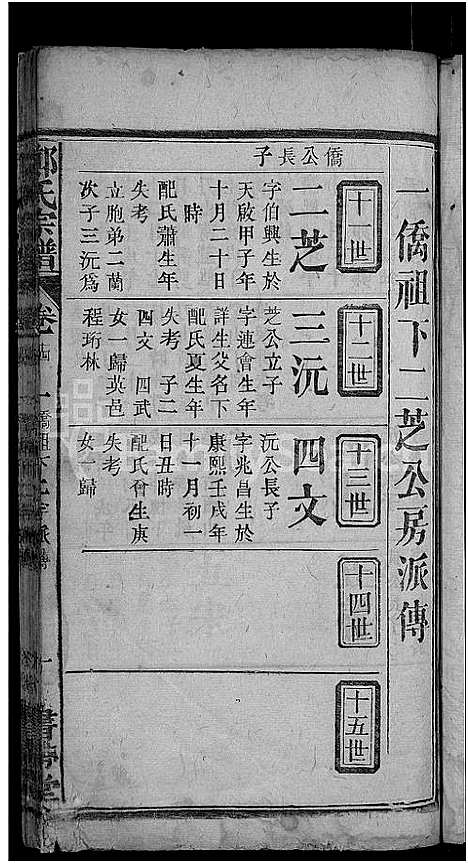 一僑祖下二芝公房派傳
十一世
僑公長子
二芝
字伯興生於
天啟甲子年
十月二十日
時
配氏蕭生年
失考
立胞弟二蘭
次子三沅爲
十二世
三沅
芝公立子
字連會生年
詳生父名下
配氏夏生年
失考 子二
四文 四武
女一歸英邑
程珩林
十三世
四文
沅公長子
字兆昌生於
康熙壬戌年
十一月初一
日丑時
配氏曾生庚
失考
女一歸
十四世
十五世
氏宗譜
卷